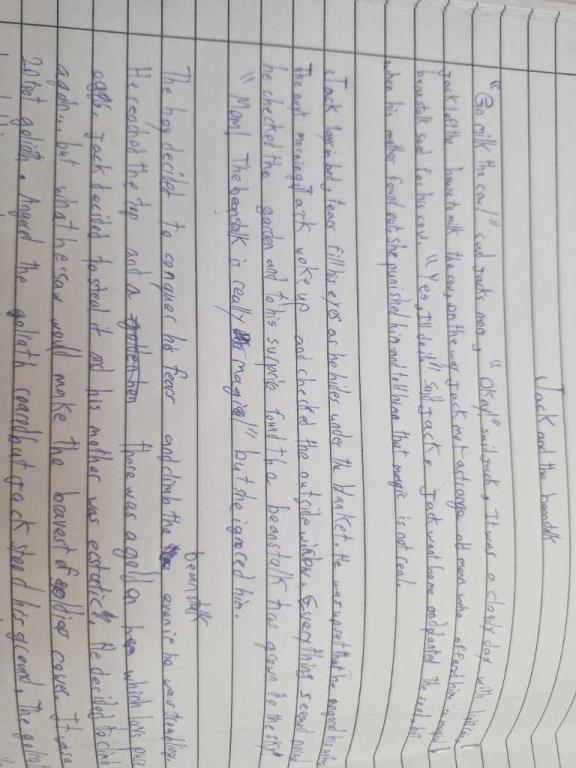 Jack and the beanstalk
"Go milk the cow!" said Jacks mom, "Okay!" said Jack, It was a cloudy day with
Jack left the house to milk the cow, on the way Jack met a strange old man who offerd him a
beanstalk seed for his cow. "Yes, I'll do it!" Said Jack. Jack went home and planted the seed, but
when his mother found out she punished him and told him that magic is not real.
Jack lays in bed, tears fill his eyes as he hides under the blanket. He was upset that he
The next morning Jack woke up and checked the outside window. Everything seemed
he checked the garden and to his surprise found the beanstalk has grown to the
"Mom! The beanstalk is really magical" but she ignored him.
The boy decided to conquer his fear and climb the beanstalk even if he was trembling
He reached the top and a there was a golden hen which lays
eggs. Jack decided to steal it and his mother was ecstatic. He decided to climb
again... but what he saw would make the bravest of soldier cower. It was a
20 foot goliath. Angerd the goliath roared but Jack stood his ground. The